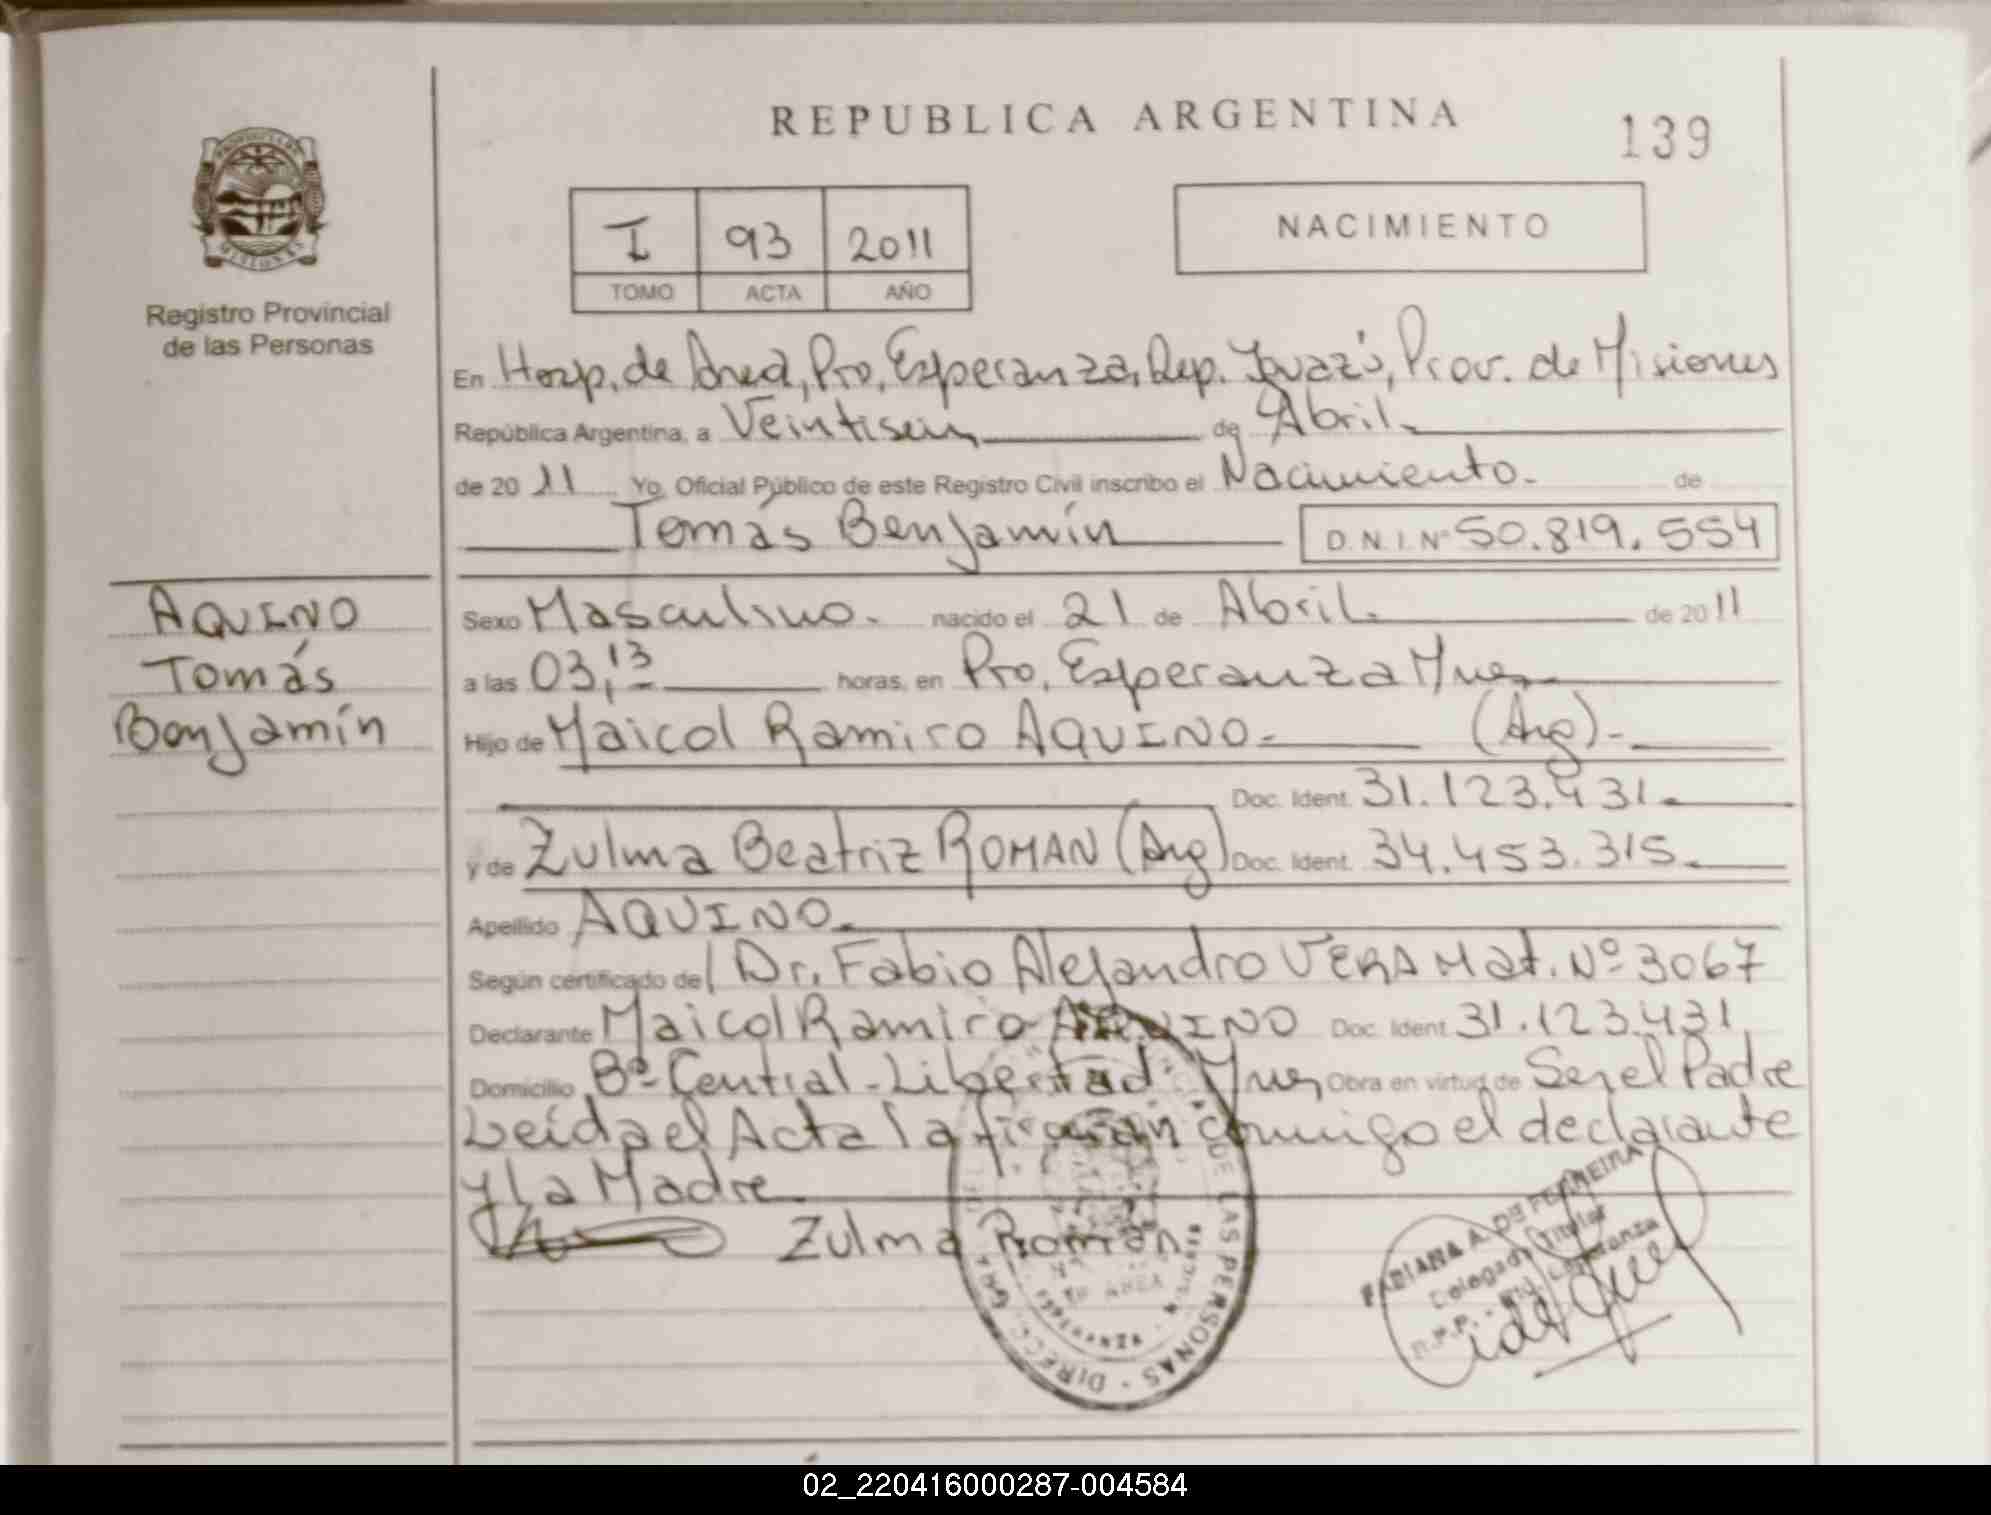 REPUBLICA ARGENTINA
139
PROVINCIA DE
MISIONES
Registro Provincial
de las Personas
I 93 2011
TOMO ACTA AÑO
NACIMIENTO
En Hosp. de Área, Pto. Esperanza, Dep. Iguazú, Prov. de Misiones
República Argentina, a Veintiseis de Abril.
de 20 11 Yo, Oficial Público de este Registro Civil inscribo el Nacimiento. de
Tomás Benjamín D.N.I. Nº 50.819.554
AQUINO
Tomás
Benjamín
Sexo Masculino. nacido el 21 de Abril. de 20 11
a las 03,13 horas, en Pto. Esperanza Mnes
Hijo de Maicol Ramiro AQUINO- (Arg)-
Doc. Ident. 31.123.431.
y de Zulma Beatriz ROMAN (Arg) Doc. Ident. 34.453.315.
Apellido AQUINO.
Según certificado del Dr. Fabio Alejandro VERA Mat. Nº 3067
Declarante Maicol Ramiro AQUINO Doc. Ident. 31.123.431
Domicilio Bº Central - Libertad Mnes Obra en virtud de Ser el Padre
Leída el Acta la firman conmigo el declarante
y la Madre.
Zulma Roman
DE LAS PERSONAS - DIRECC. GRAL.
FABIANA A. DE FERREIRA
Delegada Titular
R.P.P. - Pto. Esperanza
02_220416000287-004584